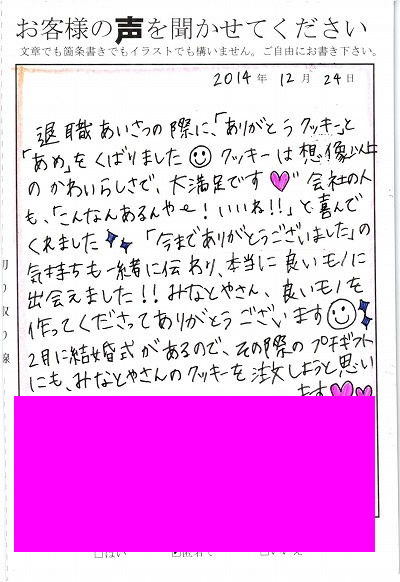 お客様の声を聞かせてください
文章でも箇条書きでもイラストでも構いません。ご自由にお書き下さい。
2014年 12月 24日
退職あいさつの際に、「ありがとうクッキー」と
「あめ」をくばりました クッキーは想像以上
のかわいらしさで、大満足です 会社の人
も、「こんなんあるんやぁー！いいね!!」と喜んで
くれました 「今までありがとうございました」の
気持ちも一緒に伝わり、本当に良いモノに
出会えました!! みなとやさん、良いモノを
作ってくださってありがとうございます
2月に結婚式があるので、その際のプチギフト
にも、みなとやさんのクッキーを注文しようと思い
ます
切り取り線